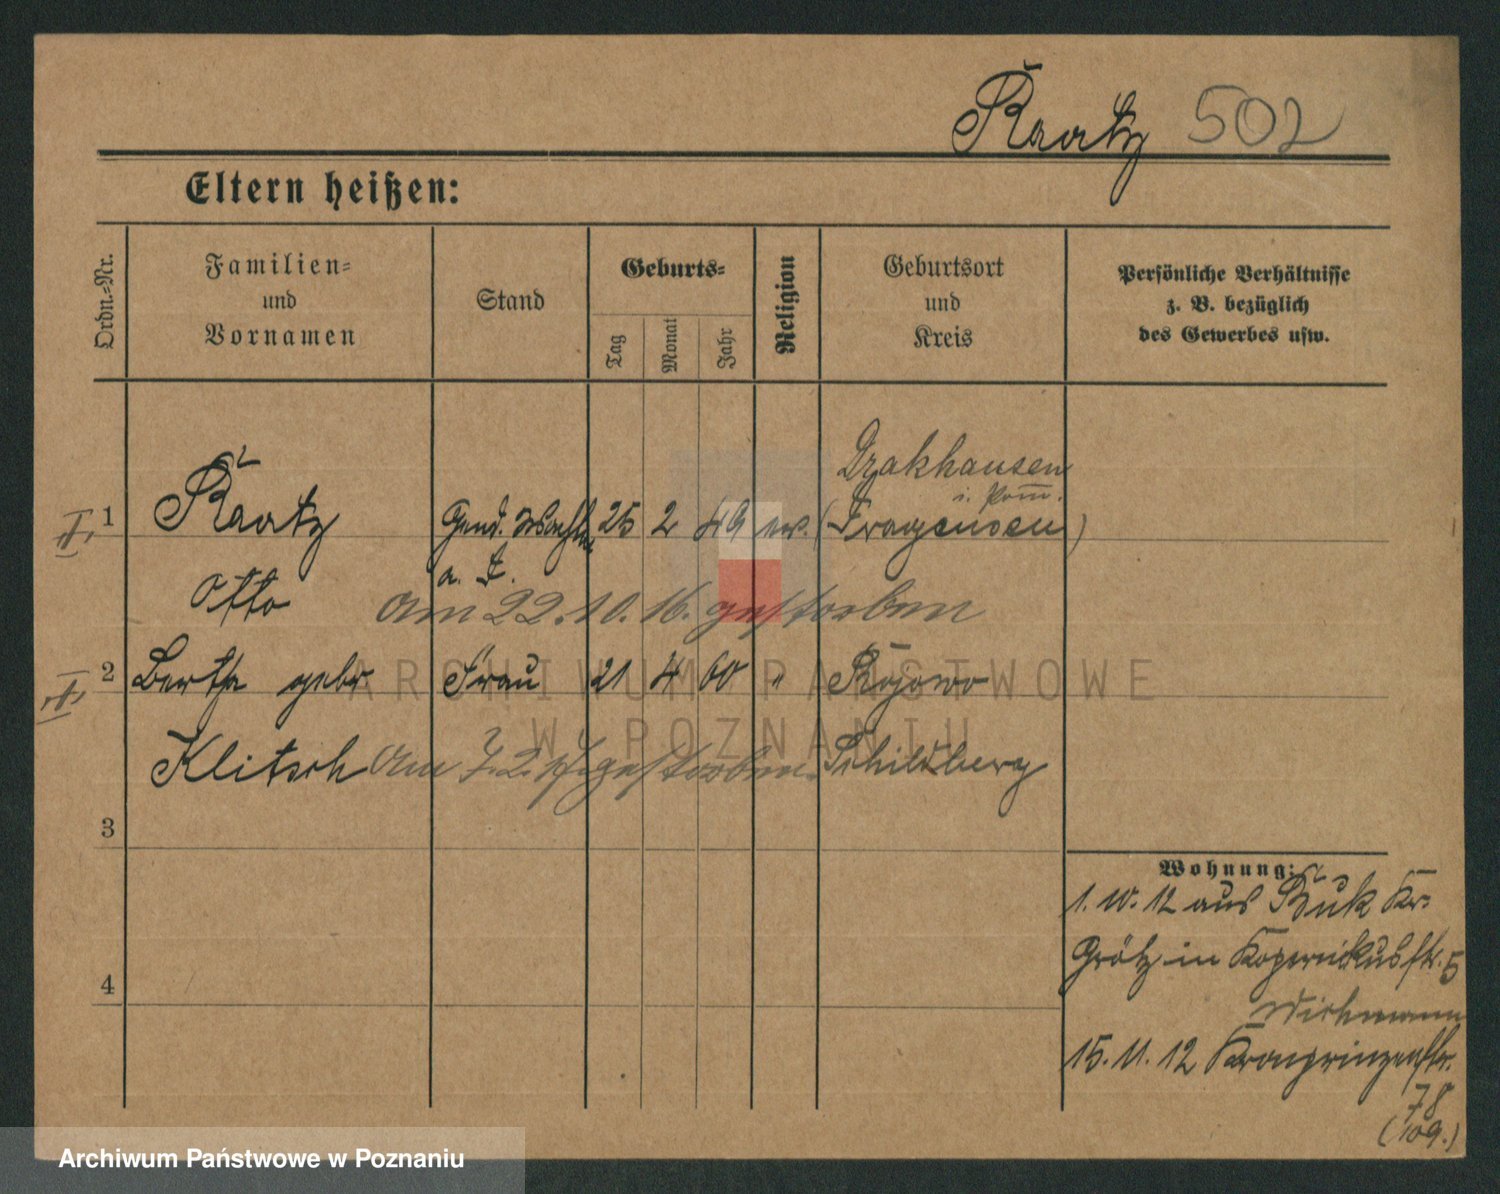 Raatz 502
Eltern heißen:
Ordn.-Nr.
Familien-
und
Vornamen
Stand
Geburts-
Tag
Monat
Jahr
Religion
Geburtsort
und
Kreis
Persönliche Verhältnisse
z. B. bezüglich
des Gewerbes usw.
Drakhausen
i. Pom.
I. 1 Raatz Gend. 25 2 49 ev. ( )
Otto a. D.
am 22.10.16. gestorben
II. 2 Bertha gebr Frau 21 4 60 " Rojowo
Klitsch am gestorben. Schildberg
3
4
Wohnung:
1. 10. 12 aus Buk Kr.
Grätz in Kopernikusstr. 5
Wichmann
15. 11. 12 Kronprinzenstr.
78
(109.)
ARCHIWUM PAŃSTWOWE
W POZNANIU
Archiwum Państwowe w Poznaniu